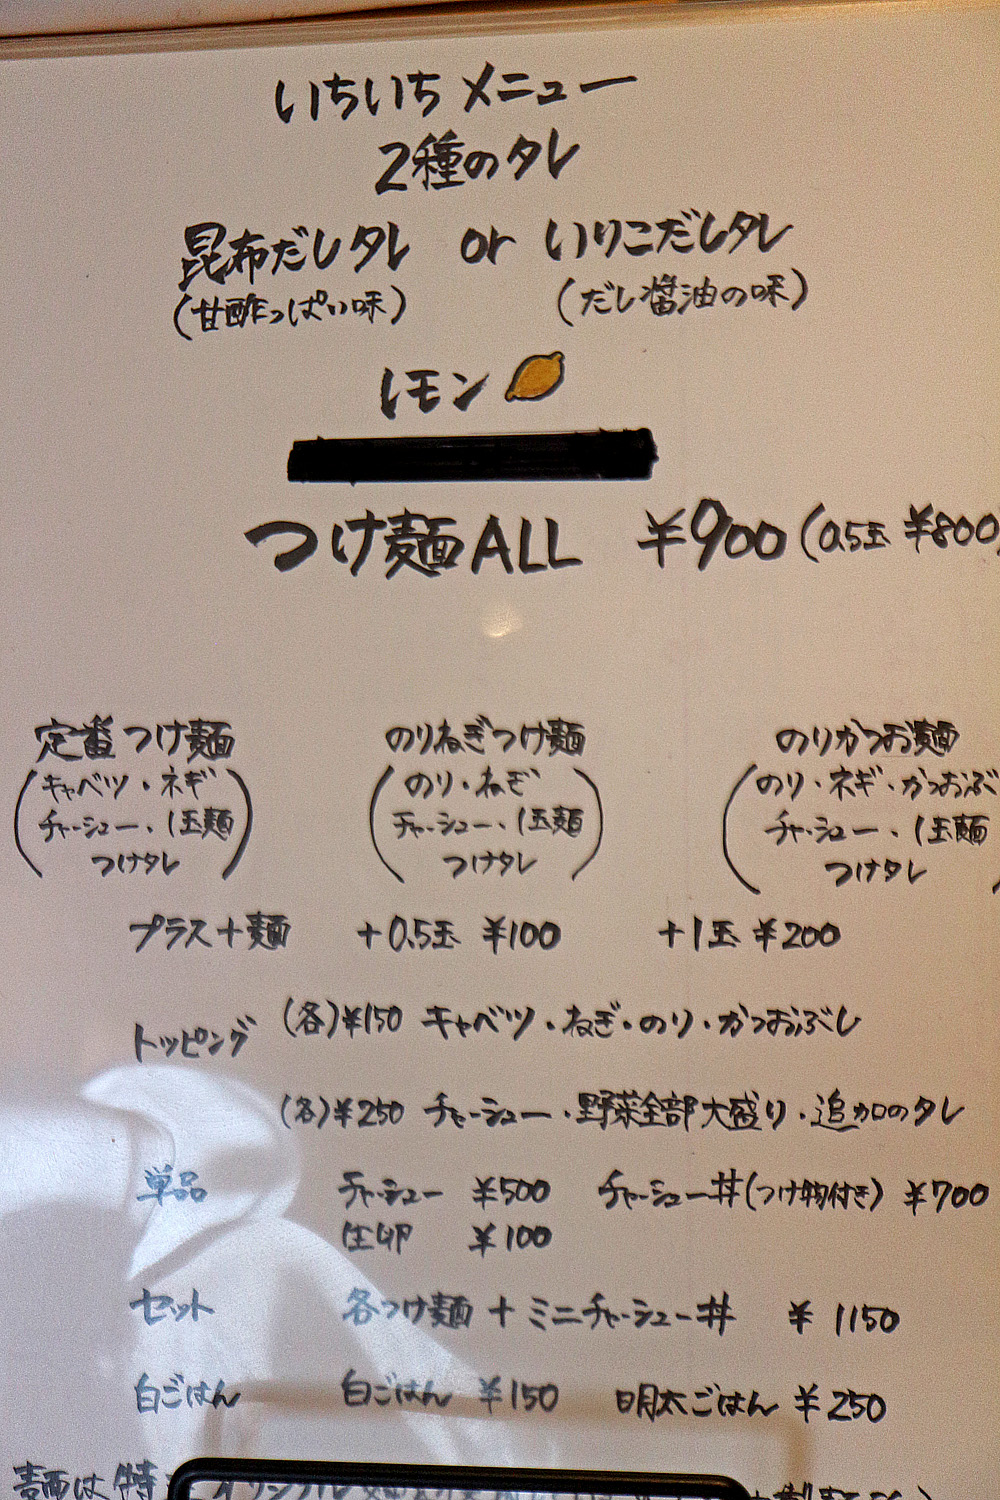 いちいち メニュー
2種のタレ
昆布だしタレ or いりこだしタレ
(甘酢っぱい味) (だし醤油の味)
レモン
つけ麺ALL ¥900 (0.5玉 ¥800)
定番つけ麺 のりねぎつけ麺 のりかつお麺
(キャベツ・ネギ (のり・ねぎ (のり・ネギ・かつおぶ
チャーシュー・1玉麺 チャーシュー・1玉麺 チャーシュー・1玉麺
つけタレ) つけタレ) つけタレ)
プラス+麺 +0.5玉 ¥100 +1玉 ¥200
トッピング (各)¥150 キャベツ・ねぎ・のり・かつおぶし
(各)¥250 チャーシュー・野菜全部大盛り・追加のタレ
単品 チャーシュー ¥500 チャーシュー丼(つけ物付き) ¥700
生卵 ¥100
セット 各つけ麺 + ミニチャーシュー丼 ¥1150
白ごはん 白ごはん ¥150 明太ごはん ¥250
麺は特